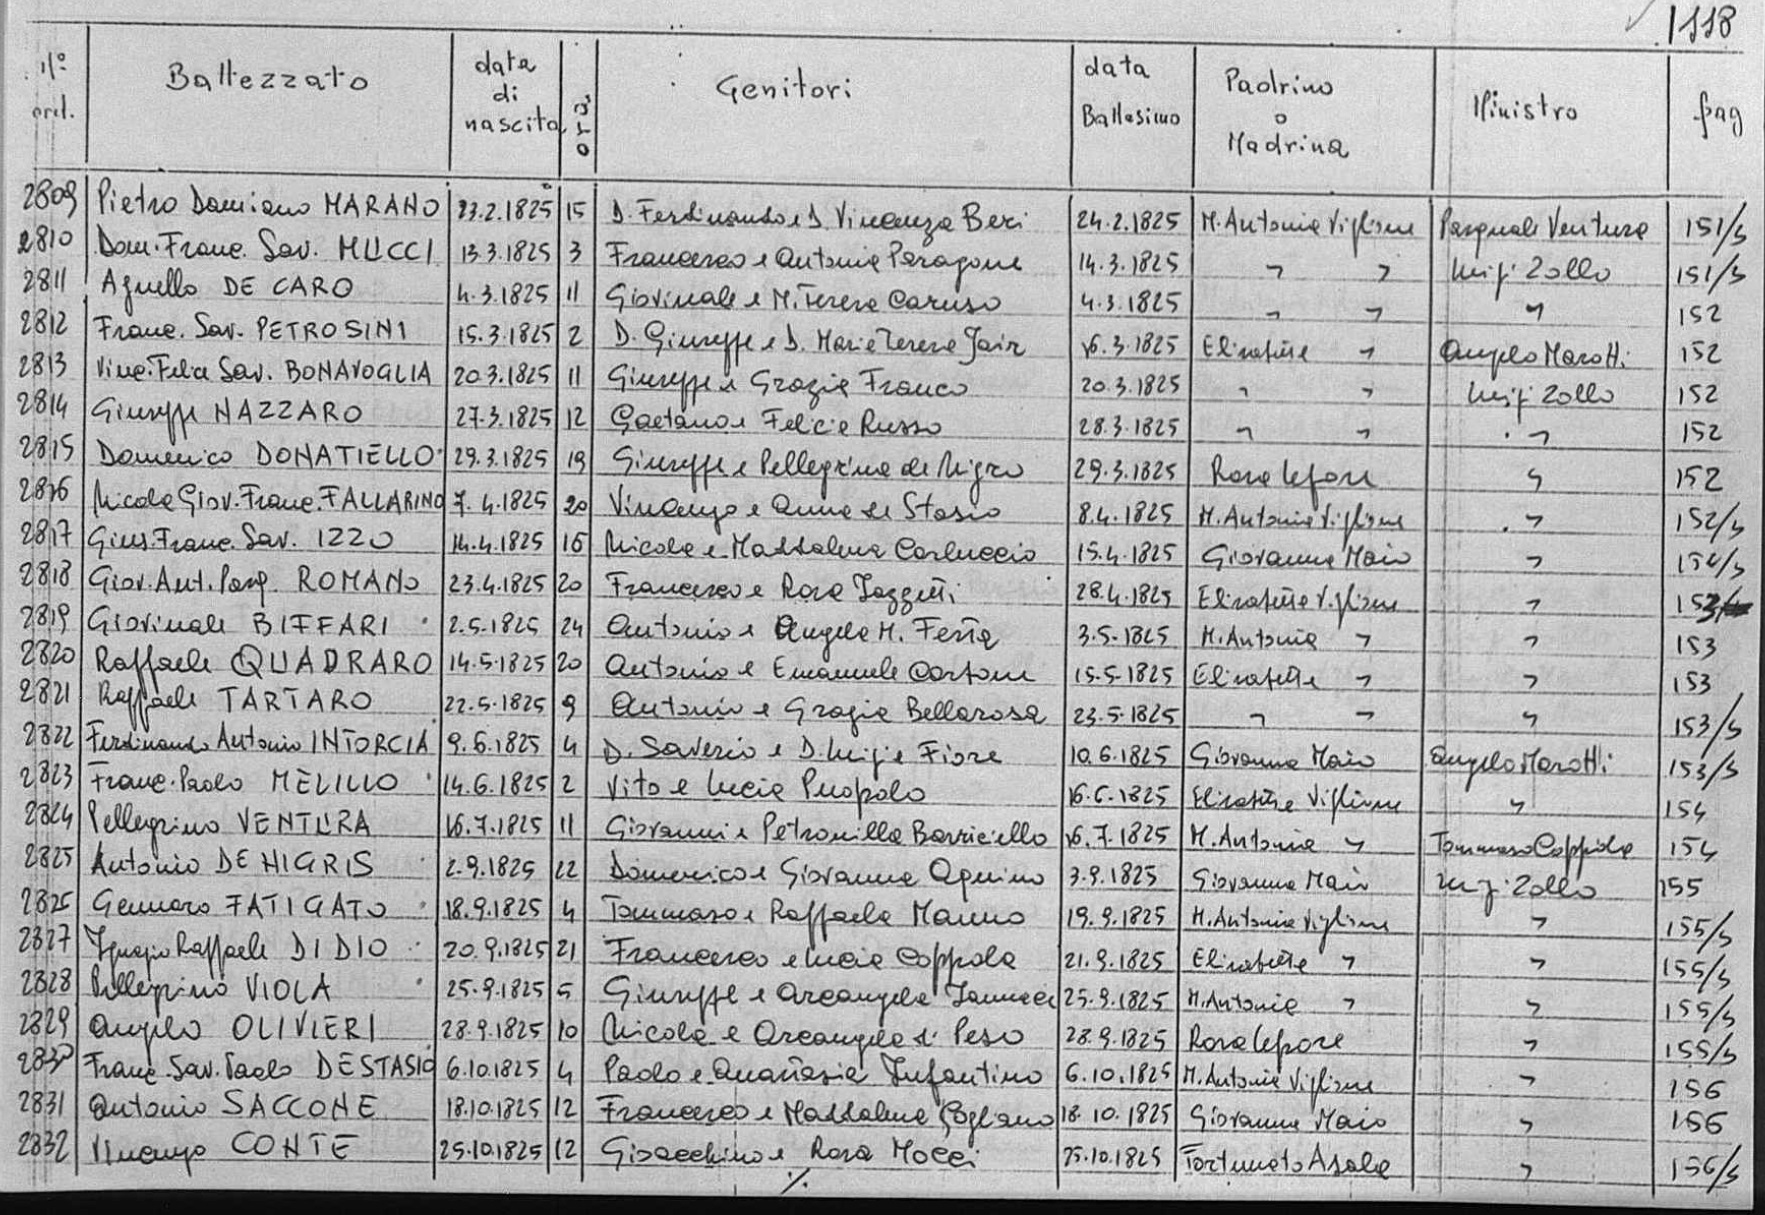 1118
N° ord. Battezzato data di nascita ora Genitori data Battesimo Padrino o Madrina Ministro pag
2809 Pietro Damiano MARANO 23.2.1825 15 D. Ferdinando e D. Vincenza Beri 24.2.1825 M. Antonia Viglione Pasquale Ventura 151/s
2810 Dom. Franc. Sav. MUCCI 13.3.1825 3 Francesco e Antonia Paragone 14.3.1825 " " Luigi Zollo 151/s
2811 Agnello DE CARO 4.3.1825 11 Giovinale e M. Teresa Caruso 4.3.1825 " " " 152
2812 Franc. Sav. PETROSINI 15.3.1825 2 D. Giuseppe e D. Maria Teresa 16.3.1825 Elisabetta " Angelo Marotti 152
2813 Vinc. Felice Sav. BONAVOGLIA 20.3.1825 11 Giuseppe e Grazia Franco 20.3.1825 " " Luigi Zollo 152
2814 Giuseppe NAZZARO 27.3.1825 12 Gaetano e Felicia Russo 28.3.1825 " " " 152
2815 Domenico DONATIELLO 29.3.1825 19 Giuseppe e Pellegrina de Nigro 29.3.1825 Rosa Lepore " 152
2816 Nicola Giov. Franc. FALLARINO 7.4.1825 20 Vincenzo e Anna de Stasio 8.4.1825 M. Antonia Viglione " 152/s
2817 Gius. Franc. Sav. IZZO 14.4.1825 16 Nicola e Maddalena Carluccio 15.4.1825 Giovanna Maio " 152/s
2818 Giov. Ant. Pasq. ROMANO 23.4.1825 20 Francesco e Rosa Iazzetti 28.4.1825 Elisabetta Viglione " 153
2819 Giovinale BIFFARI 2.5.1825 24 Antonio e Angela M. Festa 3.5.1825 M. Antonia " " 153
2820 Raffaele QUADRARO 14.5.1825 20 Antonio e Emanuela Carfone 15.5.1825 Elisabetta " " 153
2821 Raffaele TARTARO 22.5.1825 9 Antonio e Grazia Bellarosa 23.5.1825 " " " 153/s
2822 Ferdinando Antonio INTORCIA 9.6.1825 4 D. Saverio e D. Luigia Fiore 10.6.1825 Giovanna Maio Angelo Marotti 153/s
2823 Franc. Paolo MELILLO 14.6.1825 2 Vito e Lucia Puopolo 16.6.1825 Elisabetta Viglione " 154
2824 Pellegrino VENTURA 16.7.1825 11 Giovanni e Petronilla Barricello 16.7.1825 M. Antonia " Tommaso Coppola 154
2825 Antonio DE NIGRIS 2.9.1825 22 Domenico e Giovanna Aquino 3.9.1825 Giovanna Maio Luigi Zollo 155
2826 Gennaro FATIGATO 18.9.1825 4 Tommaso e Raffaela Manno 19.9.1825 M. Antonia Viglione " 155/s
2827 Ignazio Raffaele DI DIO 20.9.1825 21 Francesco e Lucia Coppola 21.9.1825 Elisabetta " " 155/s
2828 Pellegrino VIOLA 25.9.1825 5 Giuseppe e Arcangela Iannucci 25.9.1825 M. Antonia " " 155/s
2829 Angelo OLIVIERI 28.9.1825 10 Nicola e Arcangela d' Peso 28.9.1825 Rosa Lepore " 155/s
2830 Franc. Sav. Paolo DE STASIO 6.10.1825 4 Paolo e Anastasia Infantino 6.10.1825 M. Antonia Viglione " 156
2831 Antonio SACCONE 18.10.1825 12 Francesco e Maddalena Cogliano 18.10.1825 Giovanna Maio " 156
2832 Vincenzo CONTE 25.10.1825 12 Gioacchino e Rosa Mocci 25.10.1825 Fortunato Asale " 156/s
./.